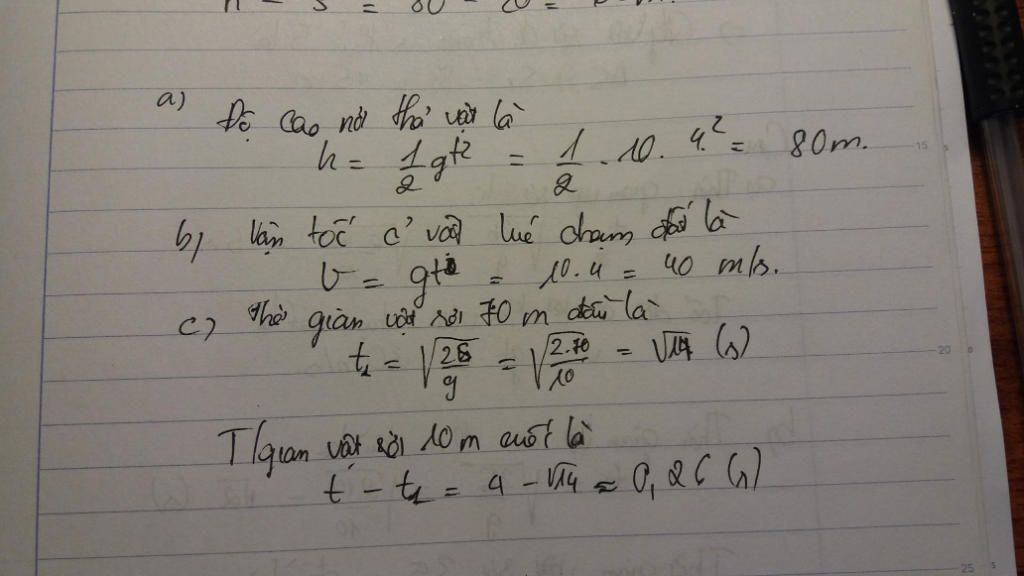 h - s = 80 - 20 =
a)
Độ cao nơi thả vật là
h = 1/2 gt² = 1/2 . 10. 4² = 80m.
b) Vận tốc củ vật lúc chạm đất là
v = gt = 10.4 = 40 m/s.
c) Thời gian vật rơi 70 m đầu là
t₁ = √(2S/g) = √(2.70/10) = √14 (s)
T/gian vật rơi 10m cuối là
t - t₁ = 4 - √14 ≈ 0,26 (s)
15
20
25